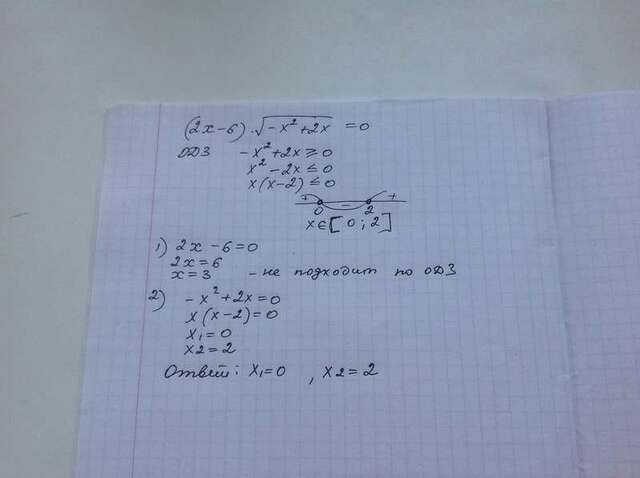 (2x-6)·√-x²+2x = 0
ОДЗ -x²+2x ≥ 0
x²-2x ≤ 0
x(x-2) ≤ 0
+ - +
0 2
x∈[0;2]
1) 2x-6=0
2x=6
x=3 - не подходит по ОДЗ
2) -x²+2x=0
x(x-2)=0
x1=0
x2=2
Ответ: x1=0 , x2=2